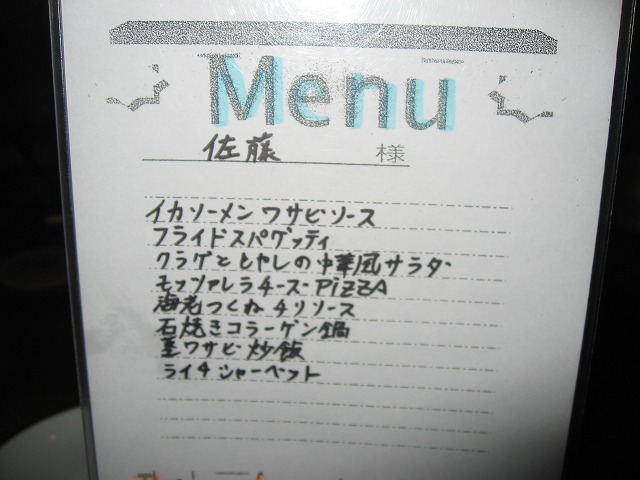 Menu
佐藤 様
イカソーメンワサビソース
フライドスパゲッティ
クラゲともやしの中華風サラダ
モッツァレラチーズPIZZA
海老つくねチリソース
石焼きコラーゲン鍋
茎ワサビ炒飯
ライチシャーベット